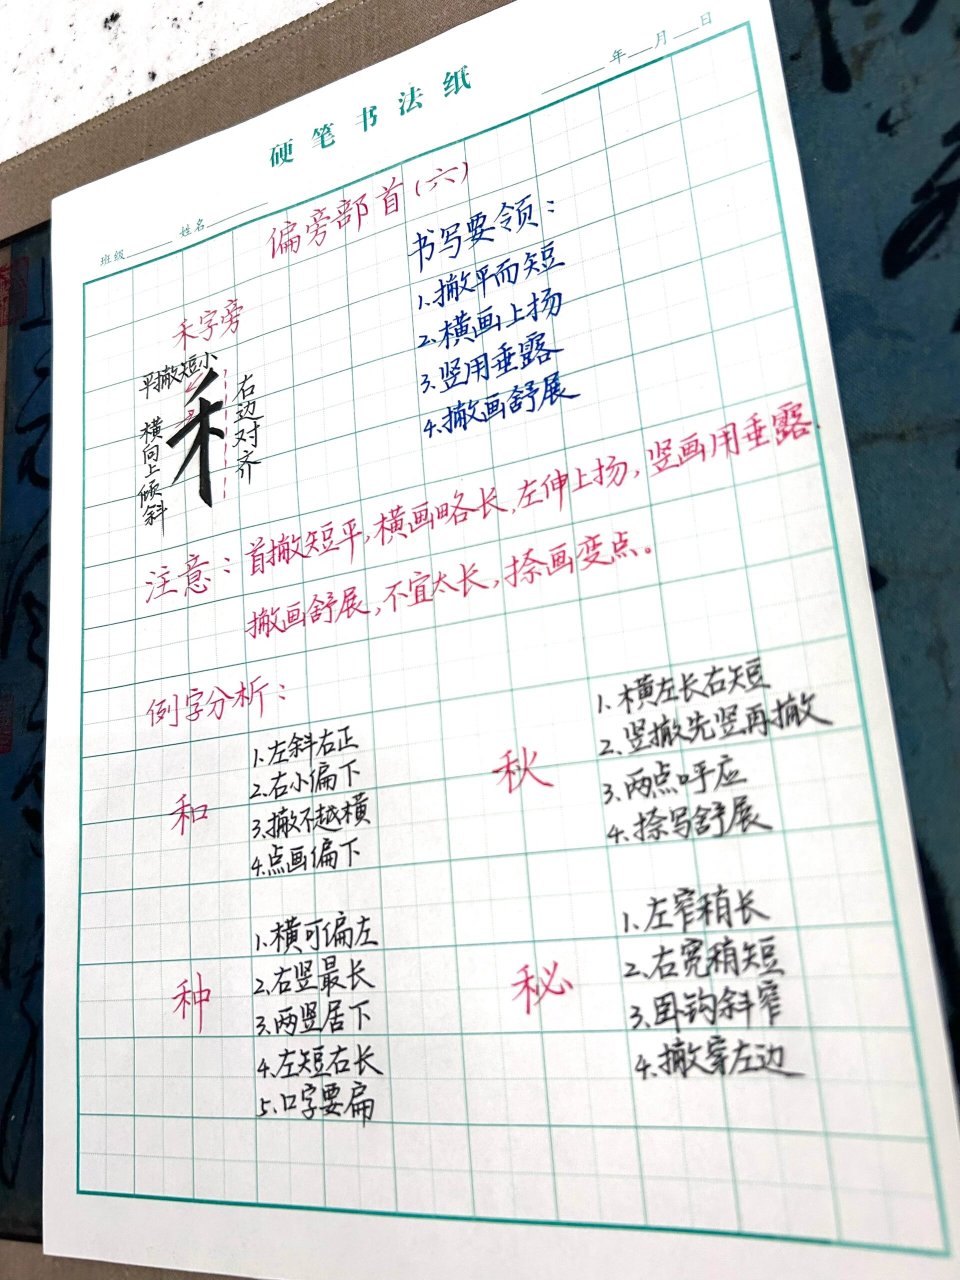 硬笔书法纸
年 月 日
班级 姓名
偏旁部首(六)
禾字旁
平撇短小
横向上倾斜
右边对齐
书写要领:
1.撇平而短
2.横画上扬
3.竖用垂露
4.撇画舒展
注意:首撇短平,横画略长,左伸上扬,竖画用垂露.
撇画舒展,不宜太长,捺画变点。
例字分析:
和
1.左斜右正
2.右小偏下
3.撇不越横
4.点画偏下
秋
1.横左长右短
2.竖撇先竖再撇
3.两点呼应
4.捺写舒展
种
1.横可偏左
2.右竖最长
3.两竖居下
4.左短右长
5.口字要扁
秘
1.左窄稍长
2.右宽稍短
3.卧钩斜窄
4.撇穿左边